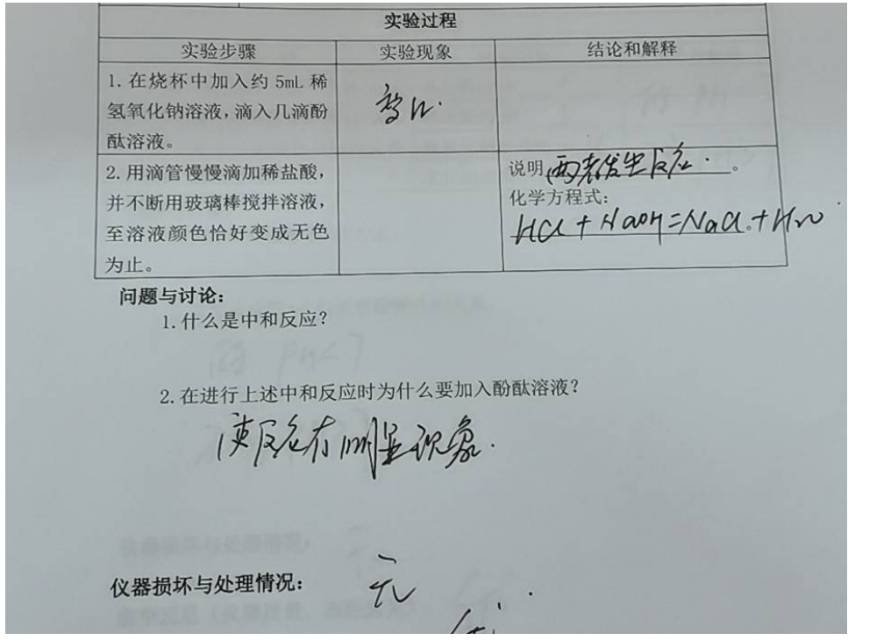 实验过程
实验步骤 实验现象 结论和解释
1.在烧杯中加入约 5mL 稀
氢氧化钠溶液，滴入几滴酚
酞溶液。
变红.
2.用滴管慢慢滴加稀盐酸，
并不断用玻璃棒搅拌溶液，
至溶液颜色恰好变成无色
为止。
说明 两者发生反应. 。
化学方程式：
HCl + NaOH = NaCl + H₂O
问题与讨论：
1.什么是中和反应？
2.在进行上述中和反应时为什么要加入酚酞溶液？
使反应有明显现象.
仪器损坏与处理情况： 无